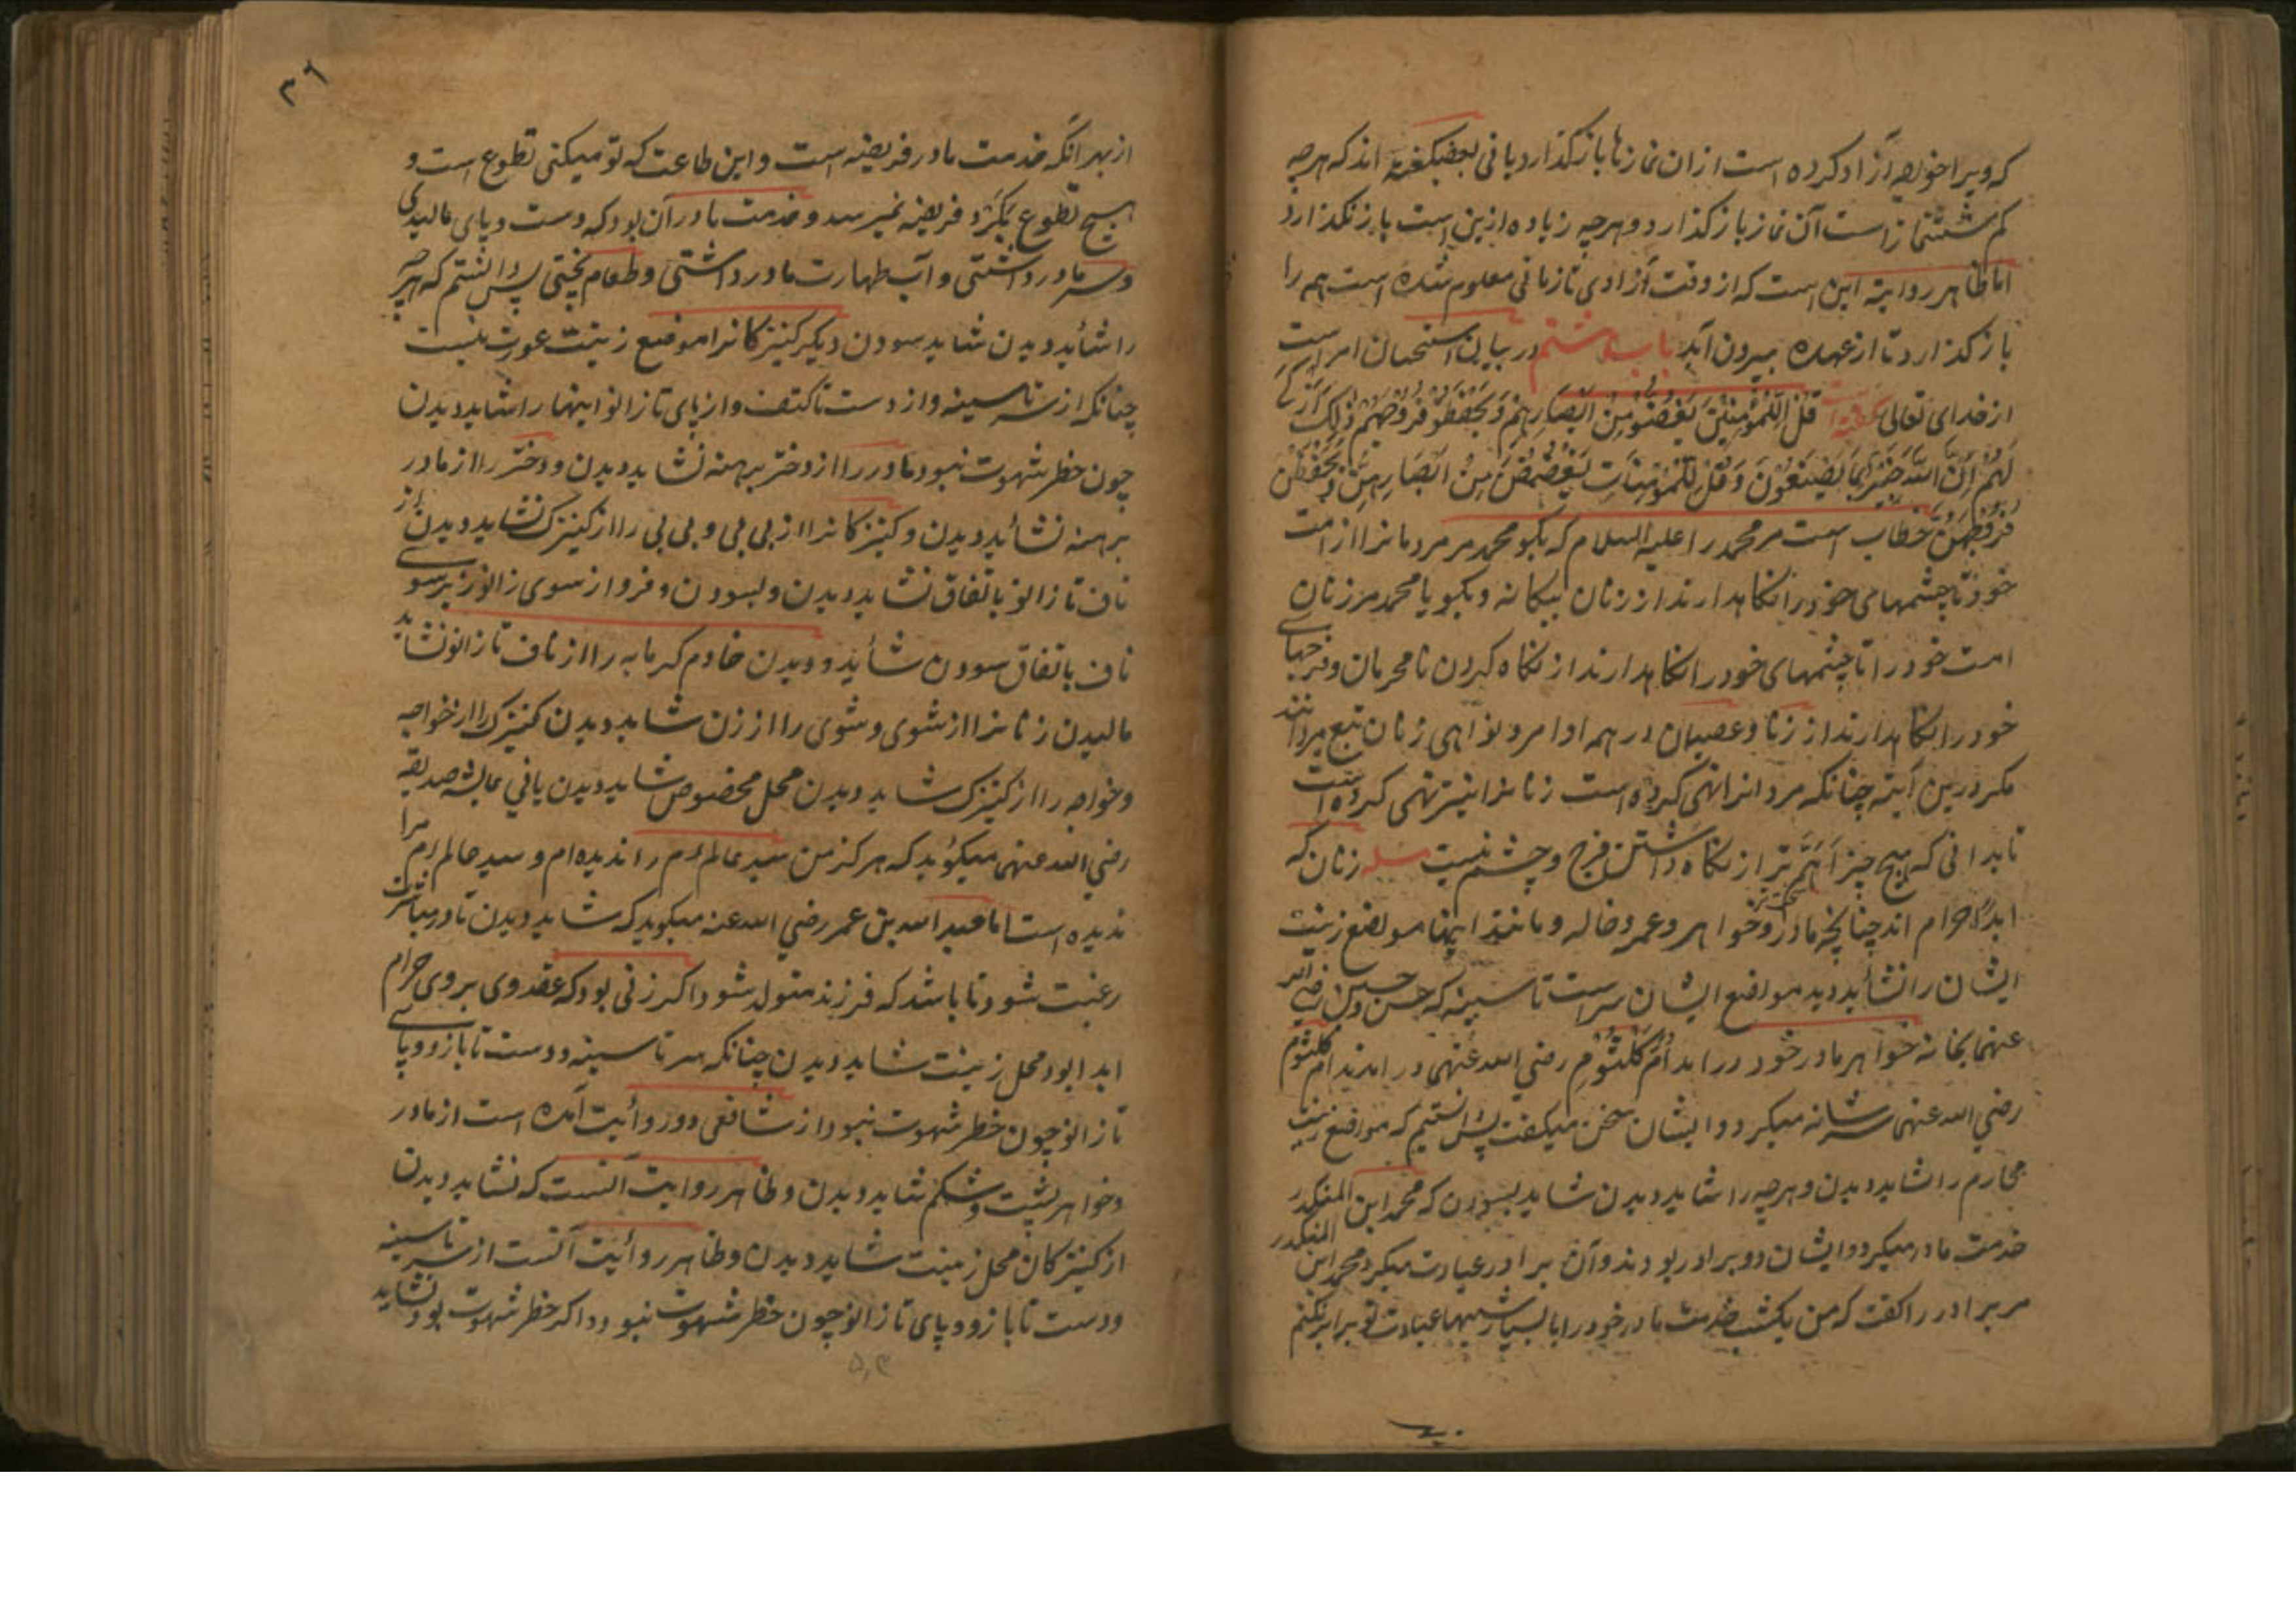 که ویرا خواجه آزاد کرده است ازان نمازها باز گذارد یا نی بعضی گفته اند که هرچه
کم شش نماز است آن نماز باز گذارد و هرچه زیاده ازین است باز نگذارد
اما ظاهر روایة این است که از وقت آزادی تا زمانی معلوم شده است همه را
باز گذارد تا از عهده بیرون آید باب هشتم در بیان استحسان امر است
از خدای تعالی قُلْ لِلْمُؤْمِنِينَ يَغُضُّوا مِنْ اَبْصَارِهِمْ وَيَحْفَظُوا فُرُوجَهُمْ ذٰلِكَ اَزْكٰى
لَهُمْ اِنَّ اللّٰهَ خَبِيرٌ بِمَا يَصْنَعُونَ وَقُلْ لِلْمُؤْمِنَاتِ يَغْضُضْنَ مِنْ اَبْصَارِهِنَّ وَيَحْفَظْنَ
فُرُوجَهُنَّ خطاب است مر محمد را علیه السلام که بگو محمد مر مردمانرا از امت
خود تا چشمهای خود را نگاهدارند از زنان بیگانه و بگو یا محمد مر زنان
امت خود را تا چشمهای خود را نگاهدارند از نگاه کردن نامحرمان و فرجهای
خود را نگاهدارند از زنا و عصیان در همه اوامر و نواهی زنان تبع مردانند
مگر درین آیة چنانکه مردانرا نهی کرده است زنانرا نیز نهی کرده است
تا بدانی که هیچ چیز اَهَمّ تر از نگاه داشتن فرج و چشم نیست مسله زنان که
ابدًا حرام اند چنانچه مادر و خواهر و عمه و خاله و مانند اینها مواضع زینت
ایشان را نشاید دید مواضع ایشان سر است تا سینه که حسن و حسین رضی الله
عنهما بخانه خواهر مادر خود در امد اُمّ کُلْثُوم رضی الله عنهی در امدند ام کلثوم
رضی الله عنهی سر شانه میکرد و ایشان سخن میگفت پس دانستیم که مواضع زینت
محارم را شاید دیدن و هرچه را شاید دیدن شاید بسودن که محمد ابن المنکدر
خدمت مادر میکرد و ایشان دو برادر بودند و آن برادر عبادت میکرد محمد ابن المنکدر
مر برادر را گفت که من یکشب خدمت مادر خود را با بسیار شبهها عبادت تو برابر نکنم
۳۶
از بهر انکه خدمت مادر فریضه است و این طاعت که تو میکنی تطوع است و
هیچ تطوع بگرد فریضه نمیرسد و خدمت مادر آن بود که دست و پای مالیدی
و سر مادر داشتی و آب طهارت مادر داشتی و طعام پختی پس دانستم که هرچه
را شاید دیدن شاید سودن دیگر کنیزکانرا موضع زینت عورت نیست
چنانکه از سر تا سینه و از دست تا کتف و از پای تا زانو اینهارا شاید دیدن
چون خطر شهوت نبود مادر را از دختر برهنه نشاید دیدن و دختر را از مادر
برهنه نشاید دیدن و کنیزکانرا از بی بی و بی بی را از کنیزک نشاید دیدن از
ناف تا زانو باتفاق نشاید دیدن و بسودن و فرو از سوی زانو زبر سوی
ناف باتفاق سودن شاید و دیدن خادم گرمابه را از ناف تا زانو نشاید
مالیدن زنانرا از شوی و شوی را از زن شاید دیدن کنیزک را از خواجه
و خواجه را از کنیزک شاید دیدن محل مخصوص شاید دیدن یا نی عایشه صدیقه
رضی الله عنهی میگوید که هرگز من سید عالم را ندیده ام و سید عالم مرا
ندیده است اما عبد الله بن عمر رضی الله عنه میگوید که شاید دیدن تا در مباشرت
رغبت شود تا باشد که فرزند متولد شود اکر زنی بود که عقد وی بر وی حرام
ابدا بود محل زینت شاید دیدن چنانکه سر تا سینه و دست تا بازو و پای
تا زانو چون خطر شهوت نبود از شافعی دو روایت آمده است از مادر
و خواهر پشت و شکم شاید دیدن و ظاهر روایت آنست که نشاید دیدن
از کنیزکان محل زینت شاید دیدن و ظاهر روایت آنست از سر تا سینه
و دست تا بازو و پای تا زانو چون خطر شهوت نبود و اکر خطر شهوت بود نشاید